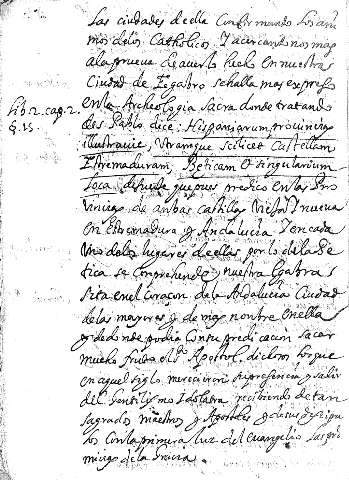 las ciudades de ella Confirmando los ani
mos de los Catholicos. Y acercandonos mas
ala prueva de averlo hecho en nuestra
Ciudad de Egabro se halla mas expreso
lib. 2. cap. 2.
§. 15.
en la Archeologia Sacra donde tratando
de S. Pablo dice: Hispaniarum provincias
illustravit, Utramque scilicet Castellam
Extremaduram, Beticam & singularium
loca, de suerte que pues predico en las Pro
vincias de ambas Castillas Vieja, Y nueva
en Extremadura y Andalucia Y en cada
Uno de los lugares de ellas, por lo de la Be
tica se Comprehende nuestra Egabra
sita en el Coraçon de la Andalucia Ciudad
de las mayores y de mas nombre en ella
y de donde podia Con su predicacion sacar
mucho fruto el Apostol, dichosos los que
en aquel siglo merecieron su presencia y salir
del Gentilismo Idolatra recibiendo de tan
sagrados Maestros y Apostoles y de sus discipu
los Con la primera luz del evangelio las pri
micias de la Gracia.